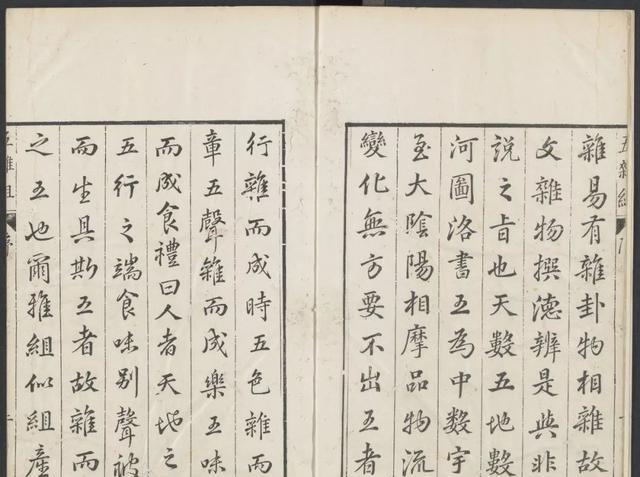 五雜組
雜易有雜卦物相雜故
文雜物撰德辨是與非
説之旨也天數五地數
河圖洛書五為中數宇
至大陰陽相摩品物流
變化無方要不出五者
行雜而成時五色雜而
章五聲雜而成樂五味
而成食禮曰人者天地之
五行之端食味別聲被
而生具斯五者故雜而
之五也爾雅組似組產